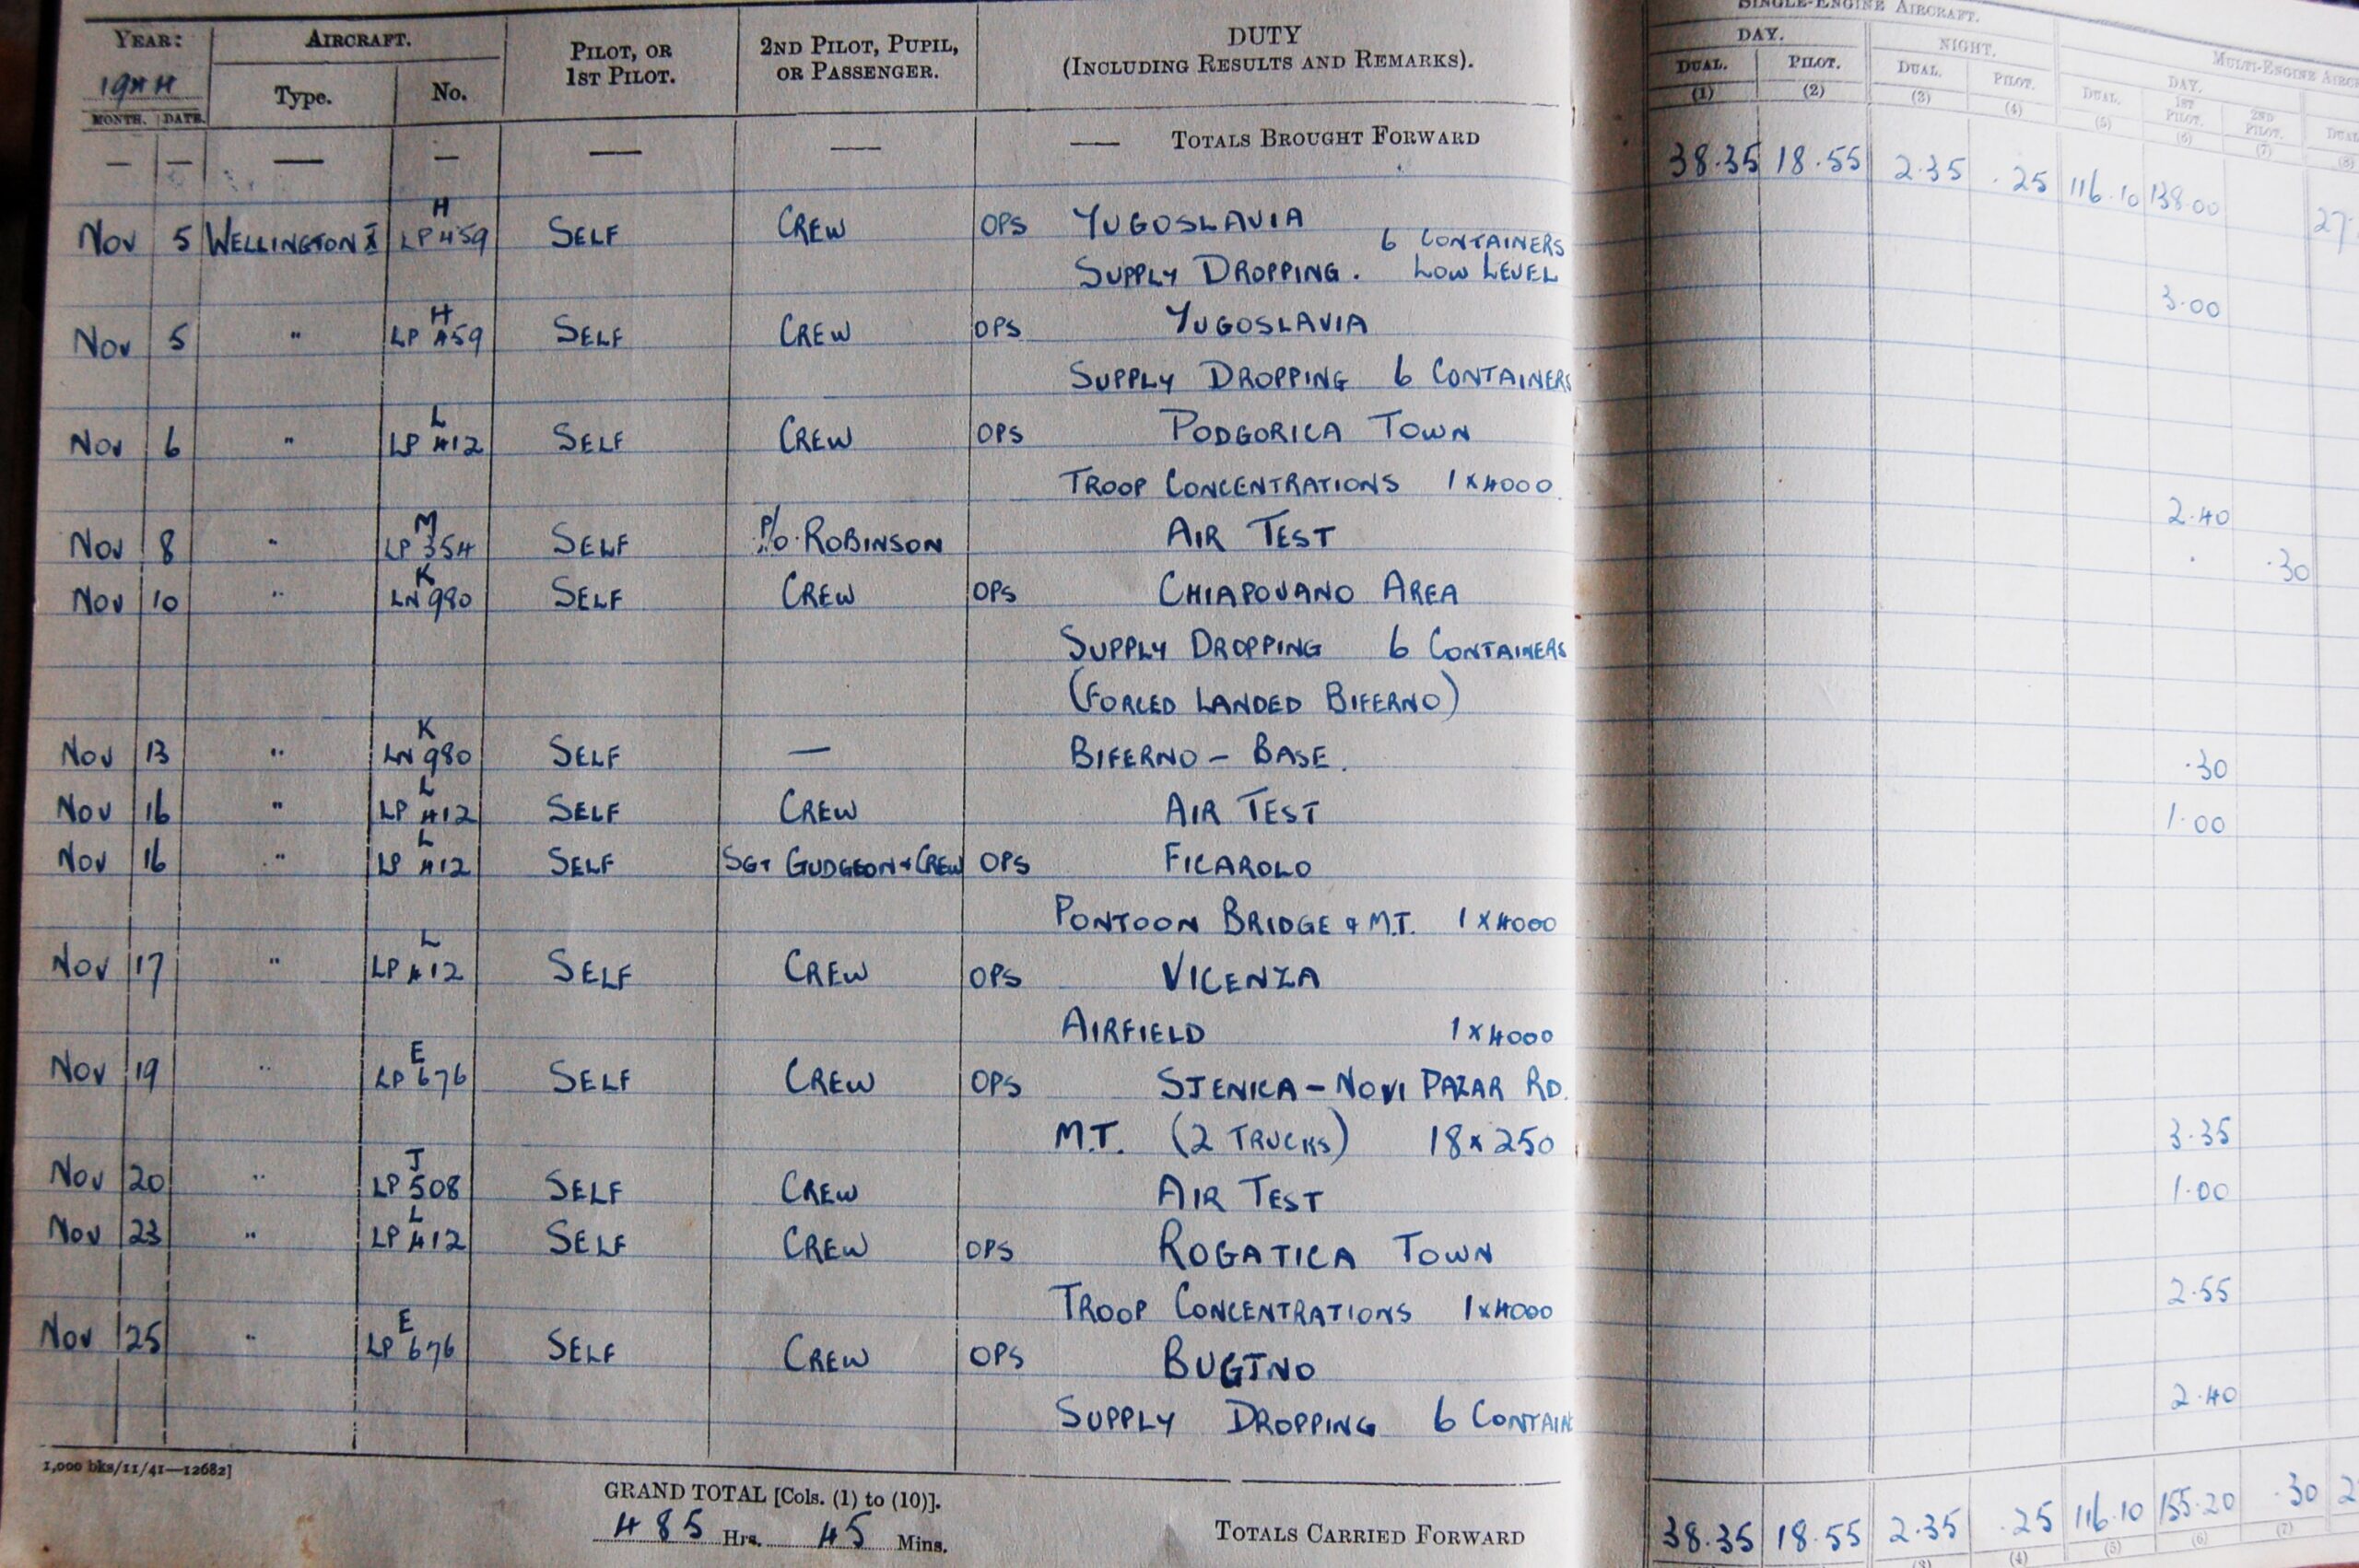 YEAR: AIRCRAFT. PILOT, OR 1ST PILOT. 2ND PILOT, PUPIL, OR PASSENGER. DUTY (INCLUDING RESULTS AND REMARKS).
1944 Type. No.
MONTH. DATE.
SINGLE-ENGINE AIRCRAFT. MULTI-ENGINE
DAY. NIGHT. DAY.
DUAL. PILOT. DUAL. PILOT. DUAL. 1ST PILOT. 2ND PILOT. DUAL
(1) (2) (3) (4) (5) (6) (7) (8)
— — — — — — — TOTALS BROUGHT FORWARD 38.35 18.55 2.35 .25 116.10 138.00 27
H
Nov 5 WELLINGTON X LP 459 SELF CREW OPS YUGOSLAVIA
6 CONTAINERS
SUPPLY DROPPING. LOW LEVEL 3.00
H
Nov 5 " LP 459 SELF CREW OPS YUGOSLAVIA
SUPPLY DROPPING 6 CONTAINERS
L
Nov 6 " LP 412 SELF CREW OPS PODGORICA TOWN
TROOP CONCENTRATIONS 1 X 4000 2.40
M
Nov 8 " LP 354 SELF P/O. ROBINSON AIR TEST .30
K
Nov 10 " LN 980 SELF CREW OPS CHIAPOVANO AREA
SUPPLY DROPPING 6 CONTAINERS
(FORCED LANDED BIFERNO)
K
Nov 13 " LN 980 SELF — BIFERNO – BASE. .30
L
Nov 16 " LP 412 SELF CREW AIR TEST 1.00
L
Nov 16 " LP 412 SELF SGT GUDGEON + CREW OPS FICAROLO
PONTOON BRIDGE & M.T. 1 X 4000
L
Nov 17 " LP 412 SELF CREW OPS VICENZA
AIRFIELD 1 X 4000
E
Nov 19 " LP 676 SELF CREW OPS SJENICA – NOVI PAZAR RD.
M.T. (2 TRUCKS) 18 X 250 3.35
J
Nov 20 " LP 508 SELF CREW AIR TEST 1.00
L
Nov 23 " LP 412 SELF CREW OPS ROGATICA TOWN
TROOP CONCENTRATIONS 1 X 4000 2.55
E
Nov 25 " LP 676 SELF CREW OPS BUGJNO
SUPPLY DROPPING 6 CONTAIN 2.40
1,000 bks/11/41—12682]
GRAND TOTAL [Cols. (1) to (10)].
485 Hrs. 45 Mins.
TOTALS CARRIED FORWARD 38.35 18.55 2.35 .25 116.10 155.20 .30 2
(3) (4) (5) (6) (7)